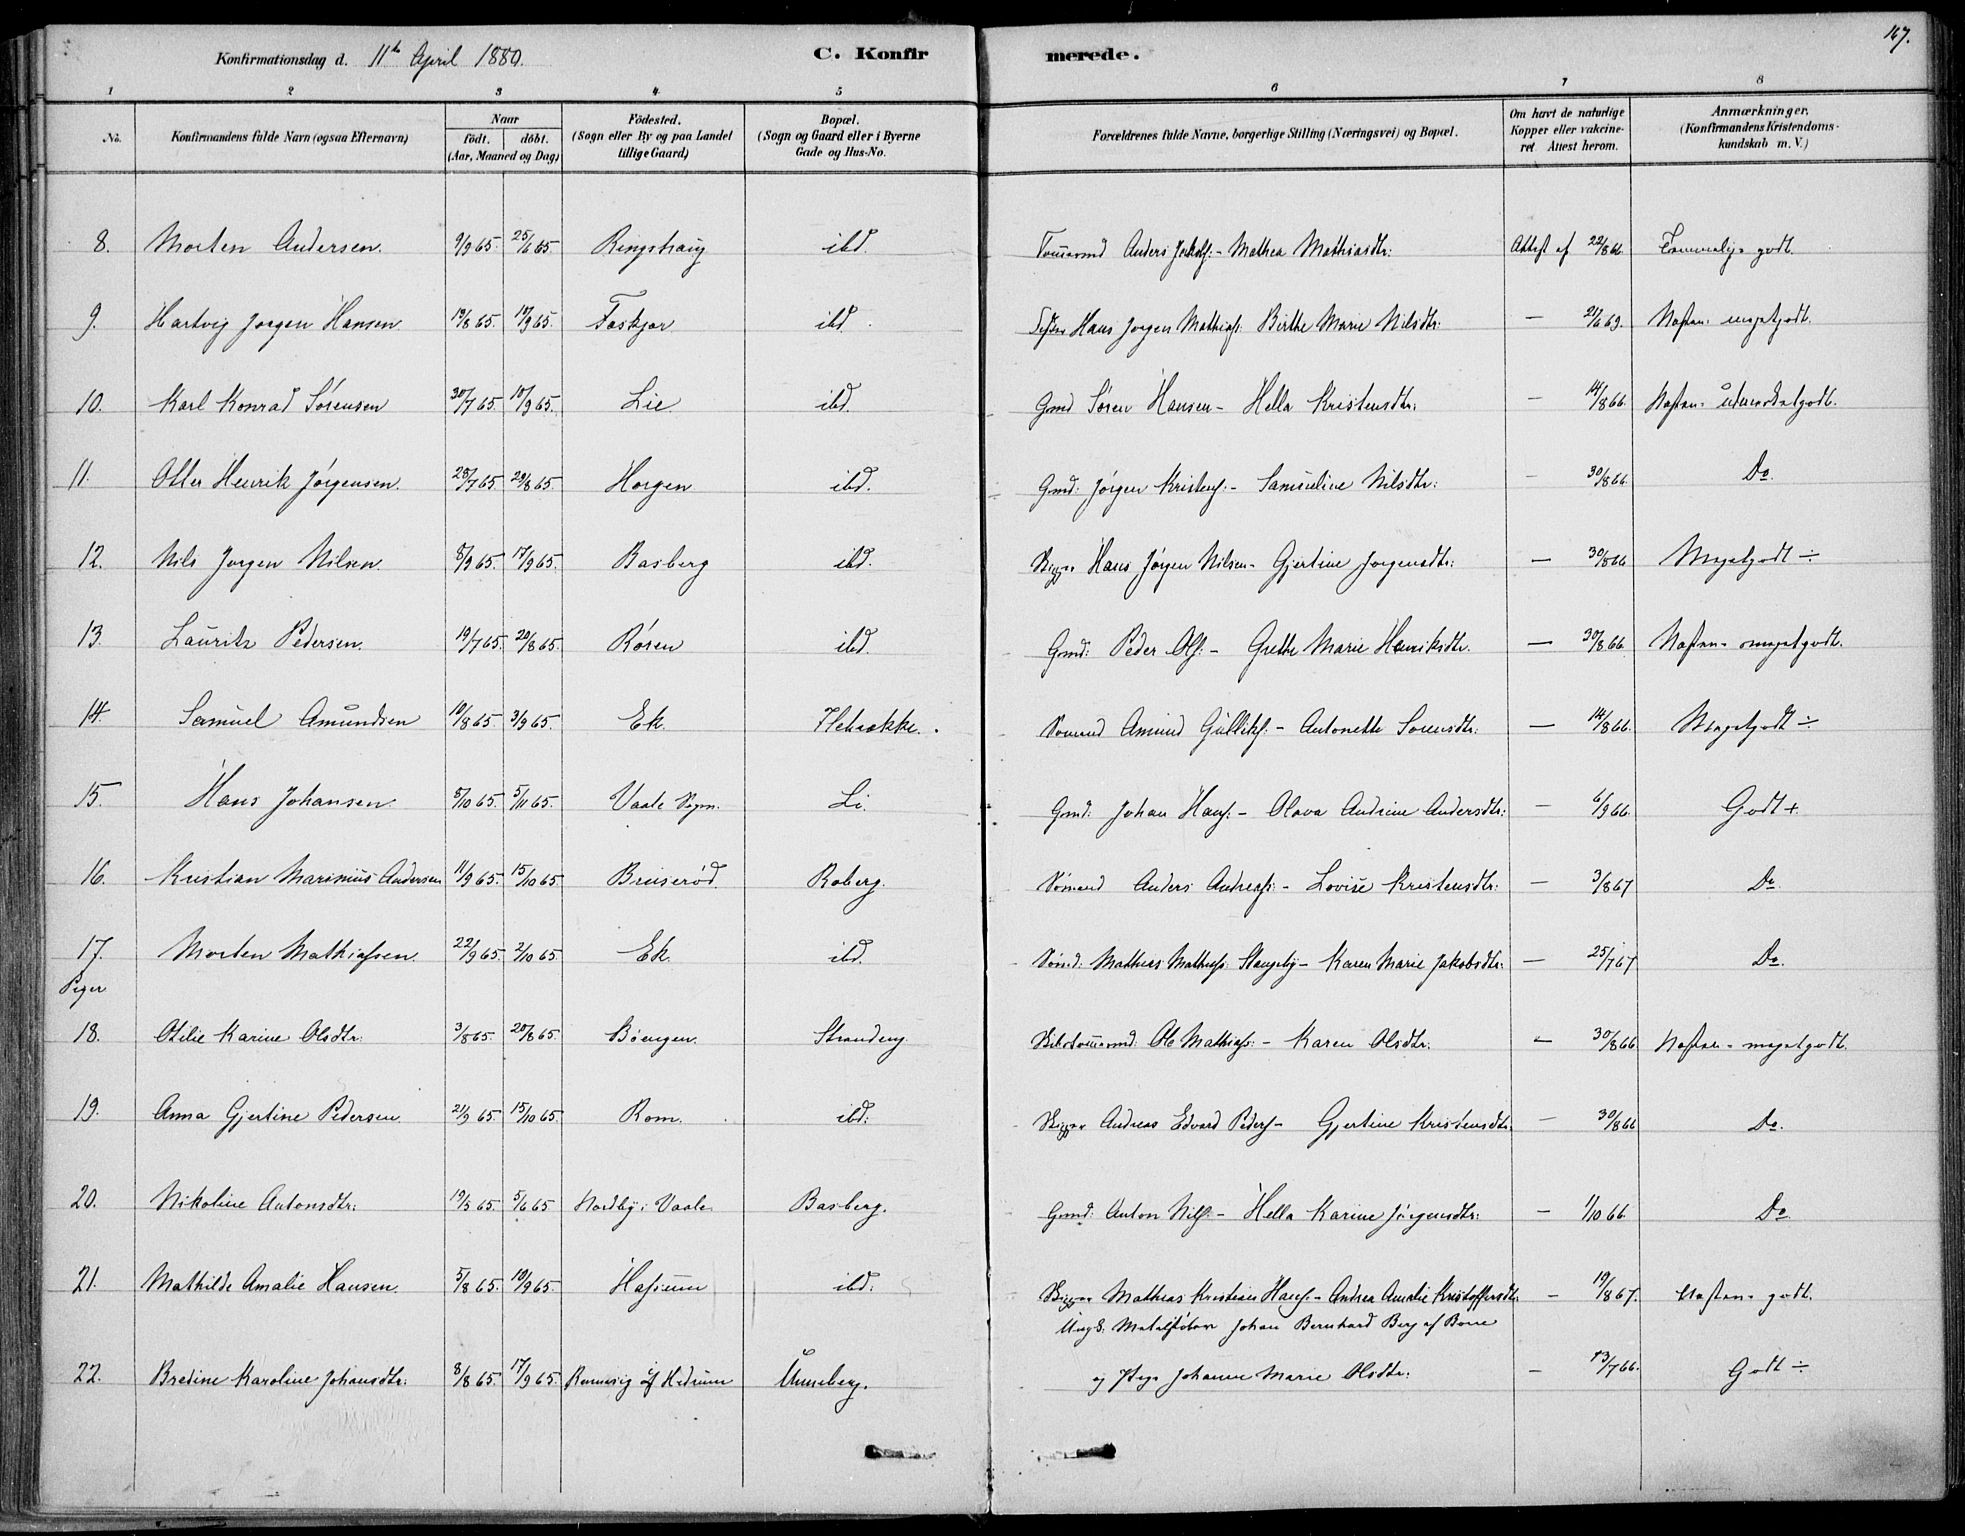 167.
Konfirmationsdag d. 11te April 1880.
C. Konfirmerede.
1 2 3 4 5 6 7 8
No. Konfirmandens fulde Navn (ogsaa Efternavn) Naar födt. döbt. (Aar, Maaned og Dag) Födested. (Sogn eller By og paa Landet tillige Gaard) Bopæl. (Sogn og Gaard eller i Byerne Gade og Hus-No. Forældrenes fulde Navne, borgerlige Stilling (Næringsvei) og Bopæl. Om havt de naturlige Kopper eller vakcineret. Attest herom. Anmærkninger. (Konfirmandens Kristendomskundskab m. V.)
8. Morten Andersen. 9/9 65. 25/6 65 Ringshaug ibd. Anders Jakobs: - Mathea Mathiasdtr: Attest af 22/8 66. Temmelig godt.
9. Hartvig Jorgen Hansen 19/8 65. 17/9 65. Faskjar ibd. Hans Jorgen Mathias: Birthe Marie Nilsdtr: — 21/6 69. Næsten megetgodt.
10. Karl Konrad Sørensen 30/7 65. 10/9 65. Lie ibd. Gmd Søren Hansen - Hella Kristensdtr: — 14/8 66. Næsten udmærketgodt.
11. Otter Henrik Jörgensen. 28/7 65 20/8 65. Horgen ibd. Gmd: Jörgen Kristens: - Samueline Nilsdtr: — 30/8 66. Do.
12. Nils Jorgen Nilsen 8/9 65. 17/9 65. Basberg ibd. Skipper Hans Jörgen Nilsen - Gjertine Jorgensdtr: — 30/8 66 Megetgodt ÷
13. Lauritz Pedersen. 19/7 65. 20/8 65. Rören ibd. Gmd: Peder Ols: - Grethe Marie Henriksdtr. — 30/8 66. Næsten megetgodt.
14. Samuel Amundsen 10/8 65 3/9 65. Ek. Hebække. Sömand Amund Gulliks: - Antonette Sorensdtr: — 14/8 66. Megetgodt ÷
15. Hans Johansen 8/10 65. 5/11 65. Vaale Sogn. Li. Gmd: Johan Hans: - Olava Andrine Andersdtr: — 6/9 66. Godt +.
16. Kristian Marinius Andersen 11/9 65. 15/10 65. Bruserød. Roberg. Sömand Anders Andreas: - Lovise Kristensdtr: — 3/8 67 Do.
17. Morten Mathiassen 22/9 65. 2/10 65. Ek. ibd. Söm.d: Mathias Mathias: Slangeby - Karen Marie Jakobsdtr: — 25/7 67 Do.
Piger
18. Otilie Karine Olsdtr: 3/8 65. 20/8 65. Böengen. Strandeng Ole Mathias: - Karen Olsdtr: — 30/8 66 Næsten megetgodt.
19. Anna Gjertine Pedersen 21/9 65. 15/10 65. Rom. ibd: Skipper Andreas Edvard Peders - Gjertine Kristensdtr: — 30/8 66 Do.
20. Nikoline Antonsdtr: 19/5 65. 5/6 65 Nordby i Vaale. Basberg. Gmd: Anton Nils: - Hella Karine Jörgensdtr: — 1/10 66. Do.
21. Mathilde Amalie Hansen. 5/8 65. 10/9 65. Hassum ibd: Skipper Mathias Kristian Hans: - Andrea Amalie Kristoffersdtr: — 19/8 67. Næsten godt.
Ungk: Johan Bernhard Berg af Borre
22. Bredine Karoline Johansdtr: 8/8 65. 17/9 65. Rennesig af Hedrum Unneberg. og Pige Johanne Marie Olsdtr: — 13/7 66. Godt ÷